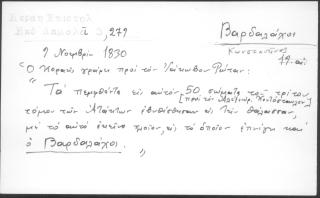 Κοραῆ Ἐπιστολ
3, 279
Βαρδαλάχος
Κωνσταντῖνος
19. αἰ.
9 Νοεμβρίου 1830
Ὁ Κοραῆς γράφει πρὸς τὸν Ἰάκωβον Ρώταν:
"Τὰ πεμφθέντα εἰς αὐτὸν 50 σώματα τοῦ τρίτου
[πρὸς τὸν Ἀλέξανδρ. Κοντόσταυλον]
τόμου τῶν Ἀτάκτων ἐβυθίσθησαν εἰς τὴν θάλασσαν,
μὲ τὸ αὐτὸ ἐκεῖνο πλοῖον, εἰς τὸ ὁποῖον ἐπνίγη καὶ
ὁ Βαρδαλάχος."